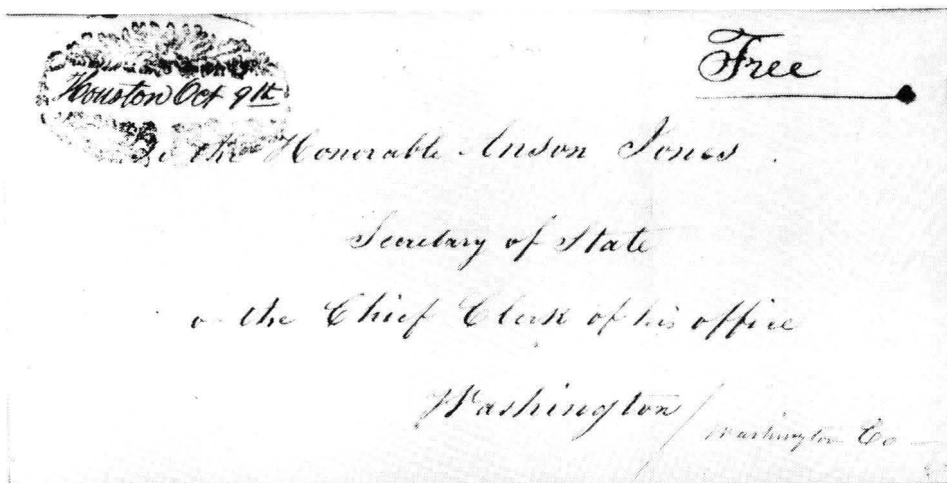 Free
Houston Oct 9th
To the Honorable Anson Jones.
Secretary of State
or the Chief Clerk of his office
Washington / Washington Co